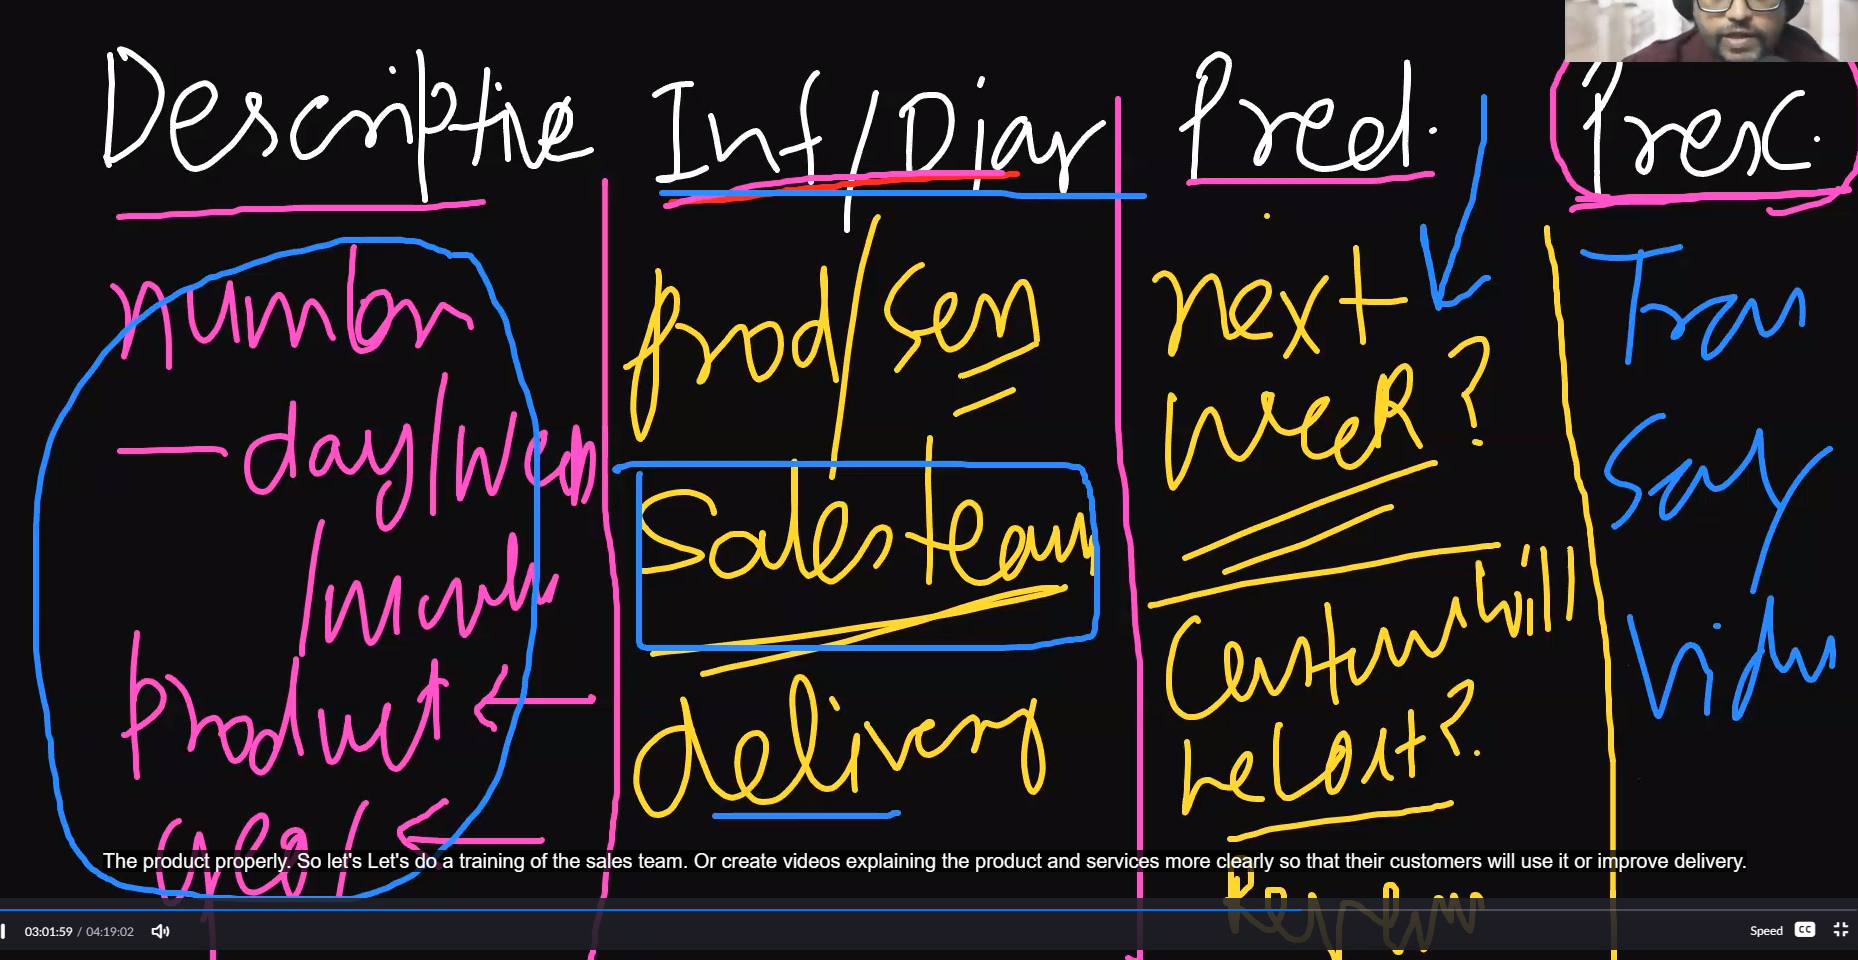 Descriptive
Inf/Diag
Pred.
Presc.
number
- day/week
/month
product
prod/serv
sales team
delivery
next
week?
Customer will
be lost?
Tran
Say
The product properly. So let's Let's do a training of the sales team. Or create videos explaining the product and services more clearly so that their customers will use it or improve delivery.
03:01:59 / 04:19:02
Speed
CC